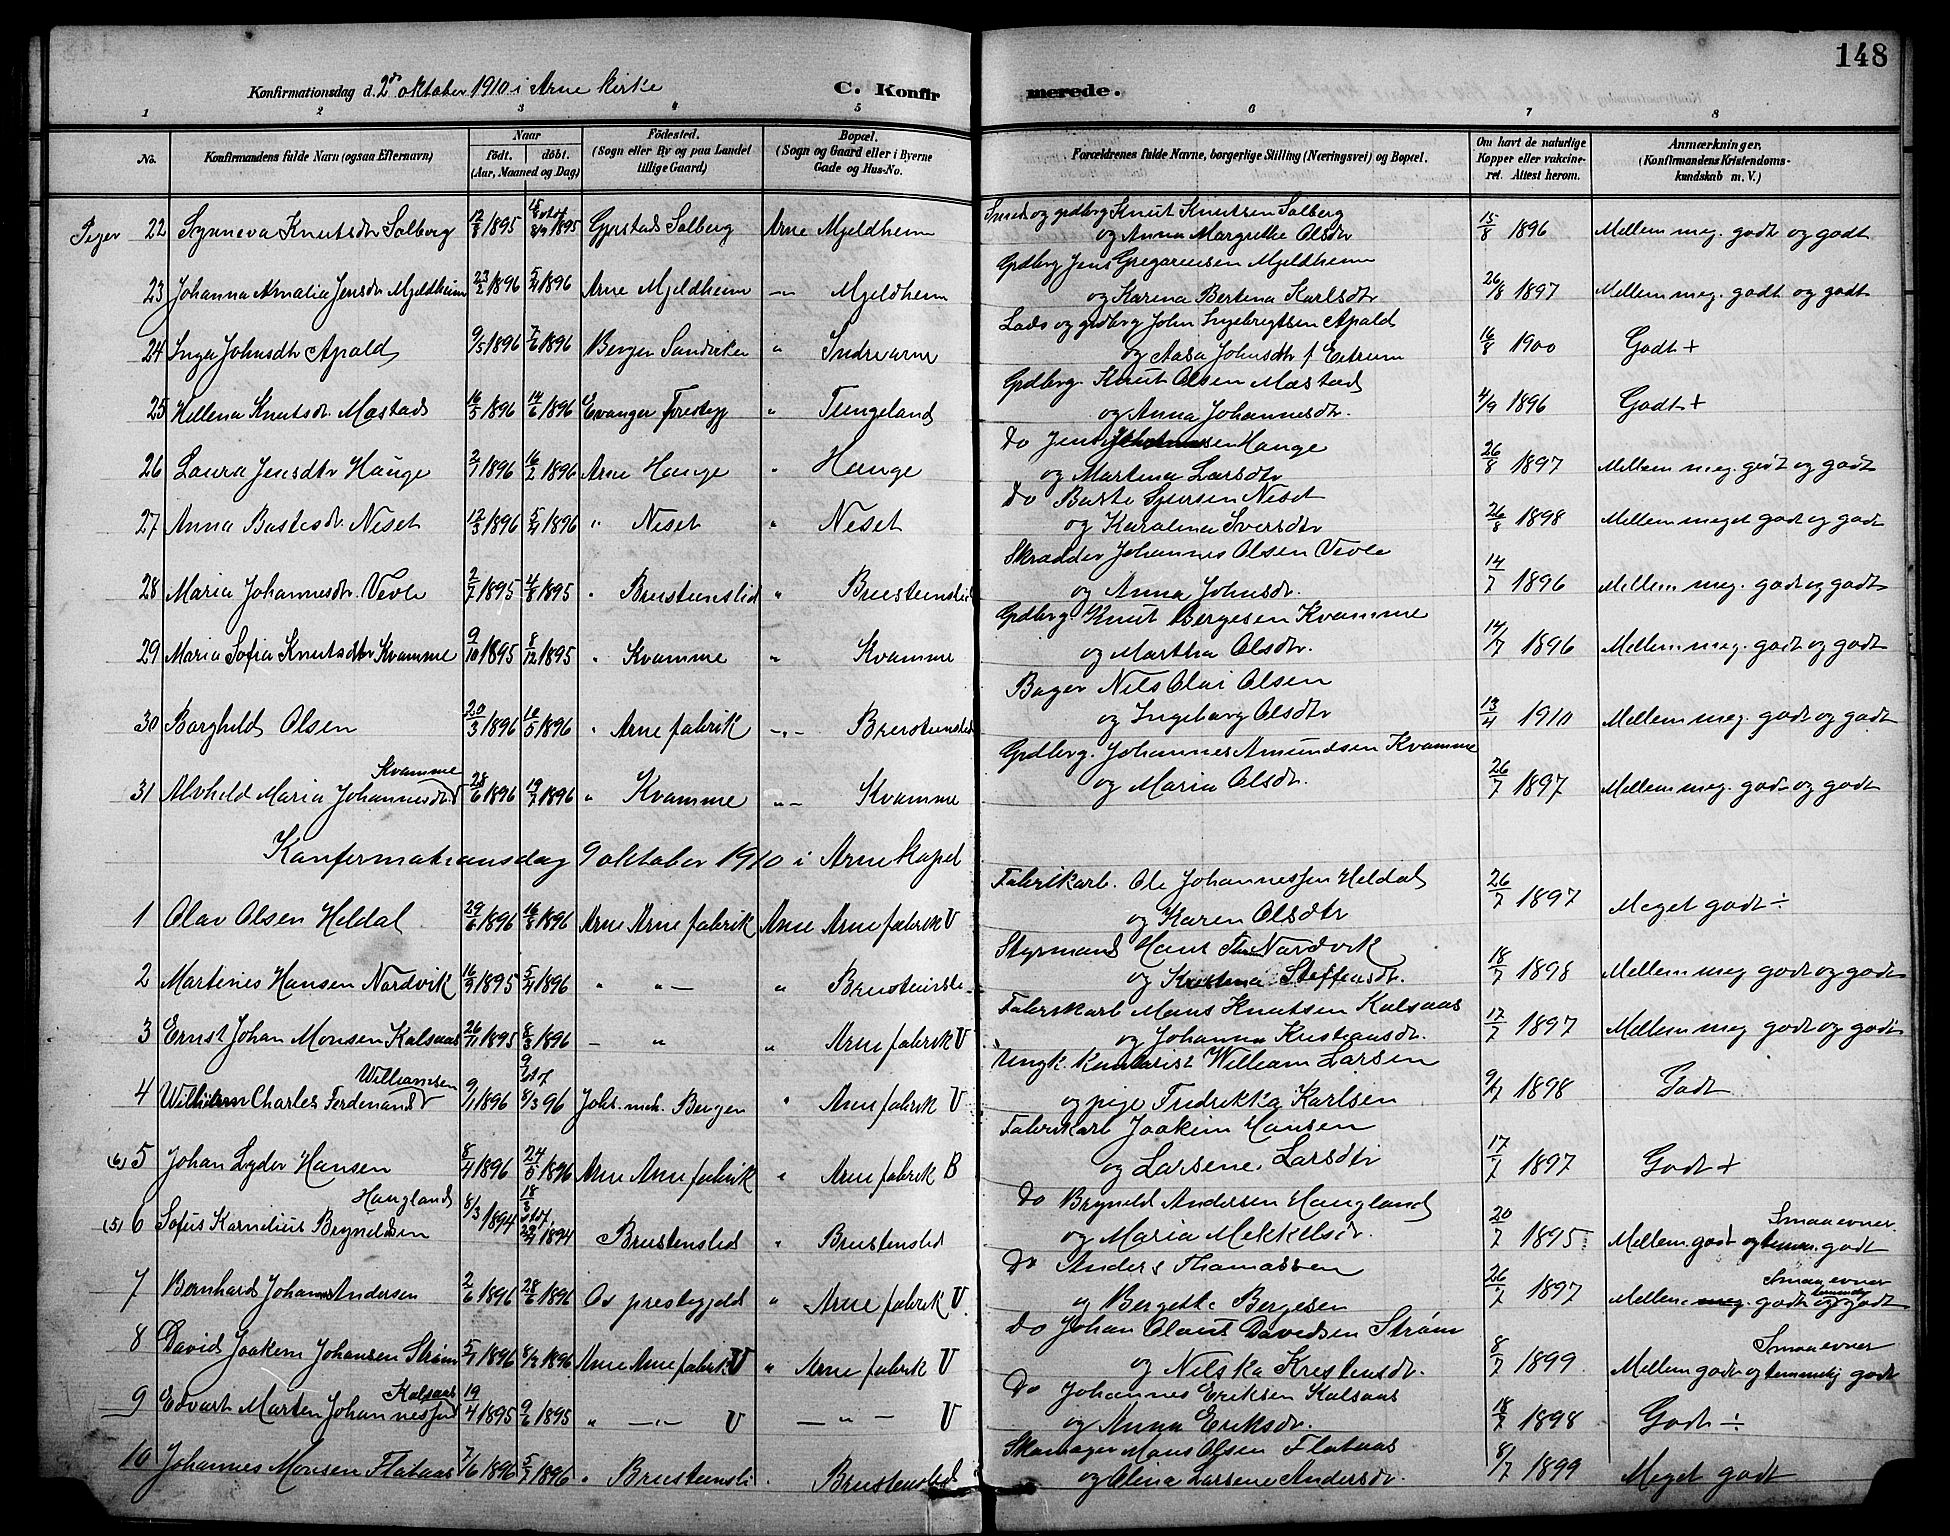 148
Konfirmationsdag d. 2den oktober 1910 i Arne kirke
C. Konfir merede.
1 2 3 4 5 6 7 8
No. Konfirmandens fulde Navn (ogsaa Efternavn) Naar født. døbt. (Aar, Maaned og Dag) Fødested. (Sogn eller By og paa Landet tillige Gaard) Bopæl. (Sogn og Gaard eller i Byerne Gade og Hus-No. Forældrenes fulde Navne, borgerlige Stilling (Næringsvei) og Bopæl. Om havt de naturlige Kopper eller vakcineret. Attest herom. Anmærkninger. (Konfirmandens Kristendomskundskab m. V.)
Smed og grdbrg Knut Knutsen Solberg
Piger 22 Synneva Knutsdtr Solberg 12/8 1895 8/9 1895 Gjerstad Solberg Arne Mjeldheim og Anna Margrethe Olsdtr 15/8 1896 Mellem meg. godt og godt
Grdbrg Jens Gregoriusen Mjeldheim
23 Johanna Amalia Jensdr Mjeldheim 23/2 1896 5/4 1896 Arne Mjeldheim -"- Mjeldheim og Karina Bertina Karlsdtr 26/8 1897 Mellem meg. godt og godt
Lads og grdbrg John Ingebrigtsen Apald
24 Inga Johnsdtr Apald 9/5 1896 7/6 1896 Bergen Sandviken " Indre arne og Aasa Johnsdtr f Extrum 16/8 1900 Godt +
Grdbrg. Knut Olsen Mæstad
25 Hellena Knutsdr. Mæstad 16/5 1896 14/6 1896 Evanger Prestegj " Tungeland og Anna Johannesdtr. 4/9 1896 Godt +
Do Jens Hauge
26 Laura Jensdtr Hauge 2/1 1896 16/2 1896 Arne Hauge " Hauge og Martina Larsdtr 26/8 1897 Mellem meg. godt og godt
Do Baste Sjursen Neset
27 Anna Bastesdr. Neset 12/3 1896 5/4 1896 " Neset " Neset og Karolina Iversdtr 26/8 1898 Mellem meget godt og godt
Skrædder Johannes Olsen Vevle
28 Maria Johannesdtr. Vevle 2/7 1895 4/8 1895 " Brusteinslid " Brusteinslid og Anna Johnsdr. 14/7 1896 Mellem meg. godt og godt
Grdbrg. Knut Børgesen Kvamme
29 Maria Sofia Knutsdtr Kvamme 9/10 1895 8/12 1895 " Kvamme " Kvamme og Martha Olsdtr. 14/7 1896 Mellem meg. godt og godt
Bager Nils Olai Olsen
30 Borghild Olsen 20/3 1896 10/5 1896 " Arne fabrik -"- Brusteinslid og Ingeborg Olsdtr 13/4 1910 Mellem meg. godt og godt
Grdbrg. Johannes Amundsen Kvamme
31 Alvhild Maria Johannesdtr Kvamme 28/6 1896 19/7 1896 " Kvamme "- Kvamme og Maria Olsdr. 26/7 1897 Mellem meg. godt og godt
Konfirmationsdag 9 oktober 1910 i Arne kapel
Fabrikarb. Ole Johannessen Heldal
1 Olav Olsen Heldal 29/6 1896 16/8 1896 Arne Arne fabrik Arne Arne fabrik V og Karen Olsdtr 26/7 1897 Meget godt ÷
Styrmand Hans Nordvik
2 Martines Hansen Nordvik 16/9 1895 5/4 1896 " " - " Brusteinsli- og Kristina Steffensdr. 18/7 1898 Mellem meg godt og godt
Fabrikarb Mons Knutsen Kalsaas
3 Ernst Johan Monsen Kalsaas 26/11 1895 8/3 1896 - " " Arne fabrik V og Johanna Kristiansdr. 17/7 1897 Mellem meg godt og godt
Ungk. kontorist William Larsen
4 Wilhelm Charles Ferdinand Williamsen 9/1 1896 8/3 96 Johs. men. Bergen " Arne fabrik V og pige Fredrikka Karlsen 9/7 1898 Godt
Fabrikarb Joakim Hansen
(6) 5 Johan Lyder Hansen 8/4 1896 24/5 1896 Arne Arne fabrik " Arne fabrik B og Larsine Larsdtr 17/7 1897 Godt +
Do Bryneld Andersen Haugland
(5) 6 Sofus Kornelius Bryneldsen Haugland 8/3 1894 18/3 1894 Brustenslid " Brustenslid og Maria Mikkelsdr. 20/7 1895 Mellem godt og temm. godt Smaa evner.
Do Anders Thomassen
7 Bernhard Johan Andersen 2/6 1896 28/6 1896 Os prestegjeld " Arne fabrik V. og Bergette Børgesen 26/7 1897 Mellem meg. godt og temmelig godt Smaa evner
Do Johan Olaus Davidsen Strøm
8 David Joakim Johansen Strøm 5/1 1896 8/2 1896 Arne Arne fabrik V " Arne fabrik V og Nilska Kristensdr. 8/7 1899 Mellem godt og temmelig godt Smaa evner
Do Johannes Eriksen Kalsaas
9 Edvart Marten Johannessen Kalsaas 19/4 1895 9/6 1895 " -"- V - " - V og Anna Eriksdr. 18/7 1898 Godt ÷
Skomager Mons Olsen Flataas
10 Johannes Monsen Flataas 7/6 1896 5/7 1896 " Brusteinsli " Brusteinslid og Olina Larsene Andersdr. 8/7 1899 Meget godt